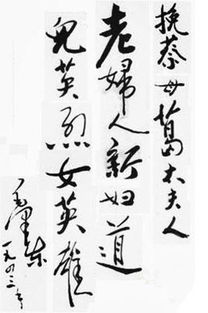 挽蔡母葛太夫人
老妇人新妇道
儿英烈女英雄
毛泽东
一九四三年